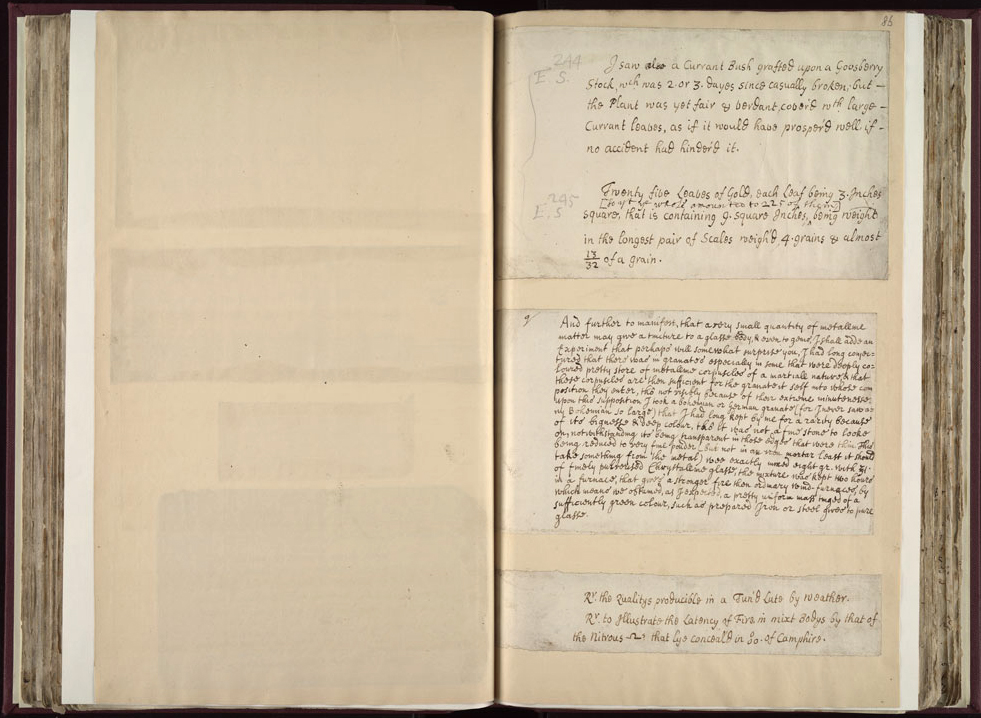 86
244
E. S.
I saw also a Currant Bush grafted upon a Goosberry
Stock, wch was 2 or 3. dayes since casually broken; but –
the Plant was yet fair & verdant, cover'd wth large –
Currant leaves, as if it would have prosper'd well if –
no accident had hinder'd it.
245
E. S
Twenty five Leaves of Gold, each Leaf being 3. Inches
[so yt ye whole amounted to 225 of them]
square, that is containing 9. square Inches, being weight
in the longest pair of Scales weigh'd 4. grains & almost
13/32 of a grain.
And further to manifest, that a very small quantity of metalline
matter may give a tincture to a glasse body, & even to gems, I shall add an
Experiment that perhaps will somewhat surprise you, I had long conjec-
tured that there was in granates especially in some that were deeply co-
lored pretty store of metalline corpuscles of a martiall nature, & that
these corpuscles are then sufficient for the granate it self into whose com
position they enter, tho not visibly because of their extreme minutenesse,
upon this supposition I took a bohemian or German granate (for I never saw a
ny Bohemian so large) that I had long kept by me for a rarity because
of its bignesse & deep colour, tho it was not a fine stone to looke
on, notwithstanding its being transparent in those edges that were thin This
being reduced to very fine powder (but not in an iron mortar least it should
take something from the metal) wee exactly mixed eight gr. with
of finely pulverised Chrystalline glasse, the mixture was kept two hours
in a furnace, that gives a stronger fire then ordinary wind-furnaces, by
which means we obtained, as I expected, a pretty uniform mass tinged of a
sufficiently green colour, such as prepared Iron or steel gives to pure
glasse.
Rx. the Qualitys producible in a Tun'd Lute by weather.
Rx. to Illustrate the Latency of Fire in mixt Bodys by that of
the Nitrous that lye conceal'd in So. of Camphire.